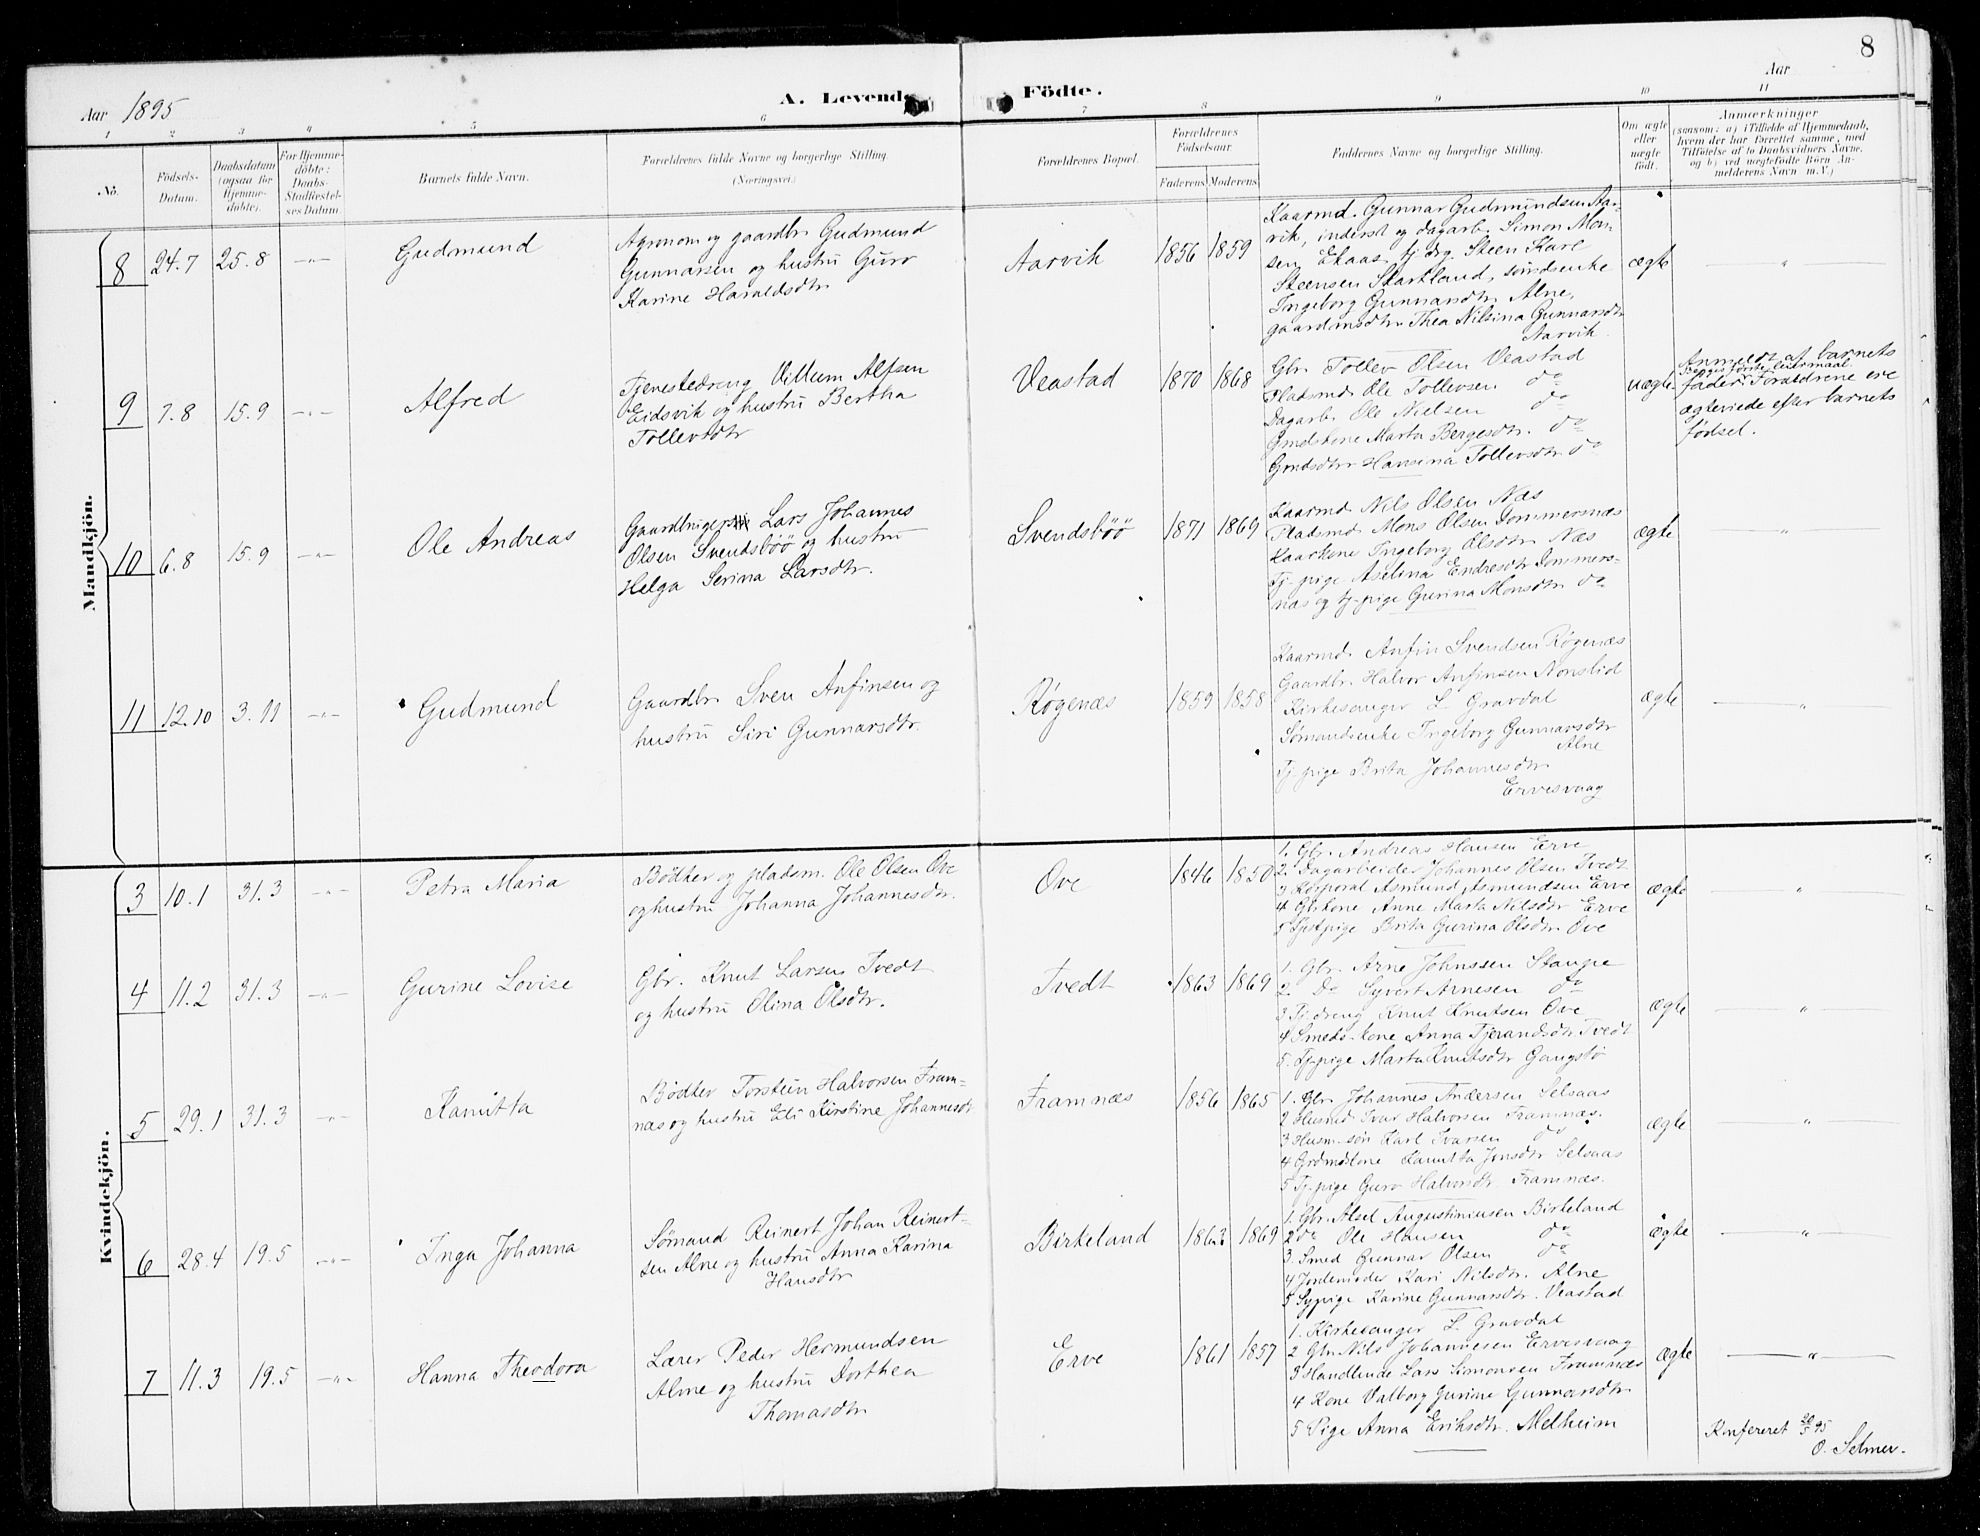 8
Aar 1895
A. Levende Födte.
Aar
1 2 3 4 5 6 7 8 9 10 11
No.
Födsels-Datum.
Daabsdatum (ogsaa for Hjemmedöbte).
For Hjemmedöbte: Daabs-Stadfæstelses Datum.
Barnets fulde Navn.
Forældrenes fulde Navne og borgerlige Stilling (Næringsvei.)
Forældrenes Bopæl.
Forældrenes Födselsaar.
Faderens Moderens
Faddernes Navne og borgerlige Stilling.
Om ægte eller uægte födt.
Anmærkninger
(saasom: a) i Tilfælde af Hjemmedaab, hvem der har forrettet samme, med Tilföielse af to Daabsvidners Navne, og b) ved uægtefödte Börn Anmelderens Navn m.V.)
Mandkjön.
8 24.7 25.8 -"- Gudmund
Agronom og gaardbr. Gudmund
Gunnarsen og hustru Guro
Karine Haraldsdtr.
Aarvik 1856 1859
Kaarmd. Gunnar Gudmundsen Aar-
vik, inderst og dagarb. Simon Mon-
sen Ekaas, tj.drg. Steen Kare
Steensen Skartland, sømdsenke
Ingeborg Gunnarsdtr. Alne,
gaardmsdtr. Thea Nilsina Gunnarsdtr
Aarvik.
ægte "
9 7.8 15.9 -"- Alfred
Tjenestedreng Villum Alfsen
Eidsvik og hustru Bertha
Tollevsdtr
Veastad 1870 1868
Gbr. Tollev Olsen Veastad
Pladsmd Ole Tollevsen do
Dagarb. Ole Nielsen do
Gmdskone Marta Bergesdtr. do
Gmdsdtr. Hansina Tollevsdtr do
uægte
Anmeldt af barnets
fader. Begges første leiermaal.
Forældrene ere
ægteviede efter barnets
fødsel.
10 6.8 15.9 -"- Ole Andreas
Gaardbruger Lars Johannes
Olsen Svendsbøö og hustru
Helga Serina Larsdtr.
Svendsbøö 1871 1869
Kaarmd Nils Olsen Næs
Pladsmd Mons Olsen Dommersnæs
Kaarkone Ingeborg Olsdtr Næs
Tj-pige Aselina Endresdtr Dommers-
næs og tj-pige Gurina Monsdtr do
ægte "
11 12.10 3.11 -"- Gudmund
Gaardbr. Sven Anfinsen og
hustru Siri Gunnarsdtr.
Røgenæs 1859 1858
Kaarmd. Anfin Svendsen Røgenæs
Gaardbr. Halvor Anfinsen Nonslid
Kirkesanger L Gravdal
Sømandsenke Ingeborg Gunnarsdtr
Alne
Tj-pige Brita Johannesdtr
Ervesvaag
ægte "
Kvindekjön.
3 10.1 31.3 -"- Petra Maria
Bødker og pladsm. Ole Olsen Ove
og hustru Johanna Johannesdtr.
Ove 1846 1850
1. Gbr. Andreas Hansen Erve
2. Dagarbeider Johannes Olsen Tvedt
3 Korporal Asmund Asmundsen Erve
4 Gbrkone Anne Marta Nilsdtr Erve
5 Tjstpige Brita Gurina Olsdtr Ove
ægte "
4 11.2 31.3 -"- Gurine Lovise
Gbr. Knut Larsen Tvedt
og hustru Olina Olsdtr.
Tvedt 1863 1869
1. Gbr. Arne Johnssen Staupe
2. Do Syvert Arnesen do
3 Tj.dreng Knut Knutsen Ove
4 Smeds-kone Anna Tjerandsdtr Tvedt
5. Tj-pige Marta Knutsdtr Gangstø
ægte "
5 29.1 31.3 -"- Kamitta
Bødker Torstein Halvorsen Fram-
næs og hustru Eli Kirstine Johannesdtr
Framnæs 1856 1865
1. Gbr. Johannes Andersen Selsaas
2 Husmd Ivar Halvorsen Framnæs.
3 Husm-søn Karl Ivarsen do
4 Grdmdkone Kamitta Jonsdtr Selsaas
5 Tj-pige Guro Halvorsdtr. Framnæs.
ægte "
6 28.4 19.5 -"- Inga Johanna
Sømand Reinert Johan Reinert-
sen Alne og hustru Anna Karina
Hansdtr
Birkeland 1863 1869
1. Gbr. Aksel Augustiniusen Birkeland
2 do Ole Hansen do
3. Smed Gunnar Olsen do
4 Jordemoder Kari Nilsdtr. Alne
5 Sypige Karine Gunnarsdtr. Veastad
ægte "
7 11.3 19.5 -"- Hanna Theodora
Lærer Peder Hermundsen
Alne og hustru Dorthea
Thomasdtr
Erve 1861 1857
1. Kirkesanger L. Gravdal
2 Gbr. Nils Johannesen Ervesvaag
3 Handlende Lars Simonsen Framnæs
4 Kone Valborg Gurine Gunnarsdtr
5 Pige Anna Eriksdtr. Melheim
ægte "
Konfereret 20/5 95
O. Selmer.